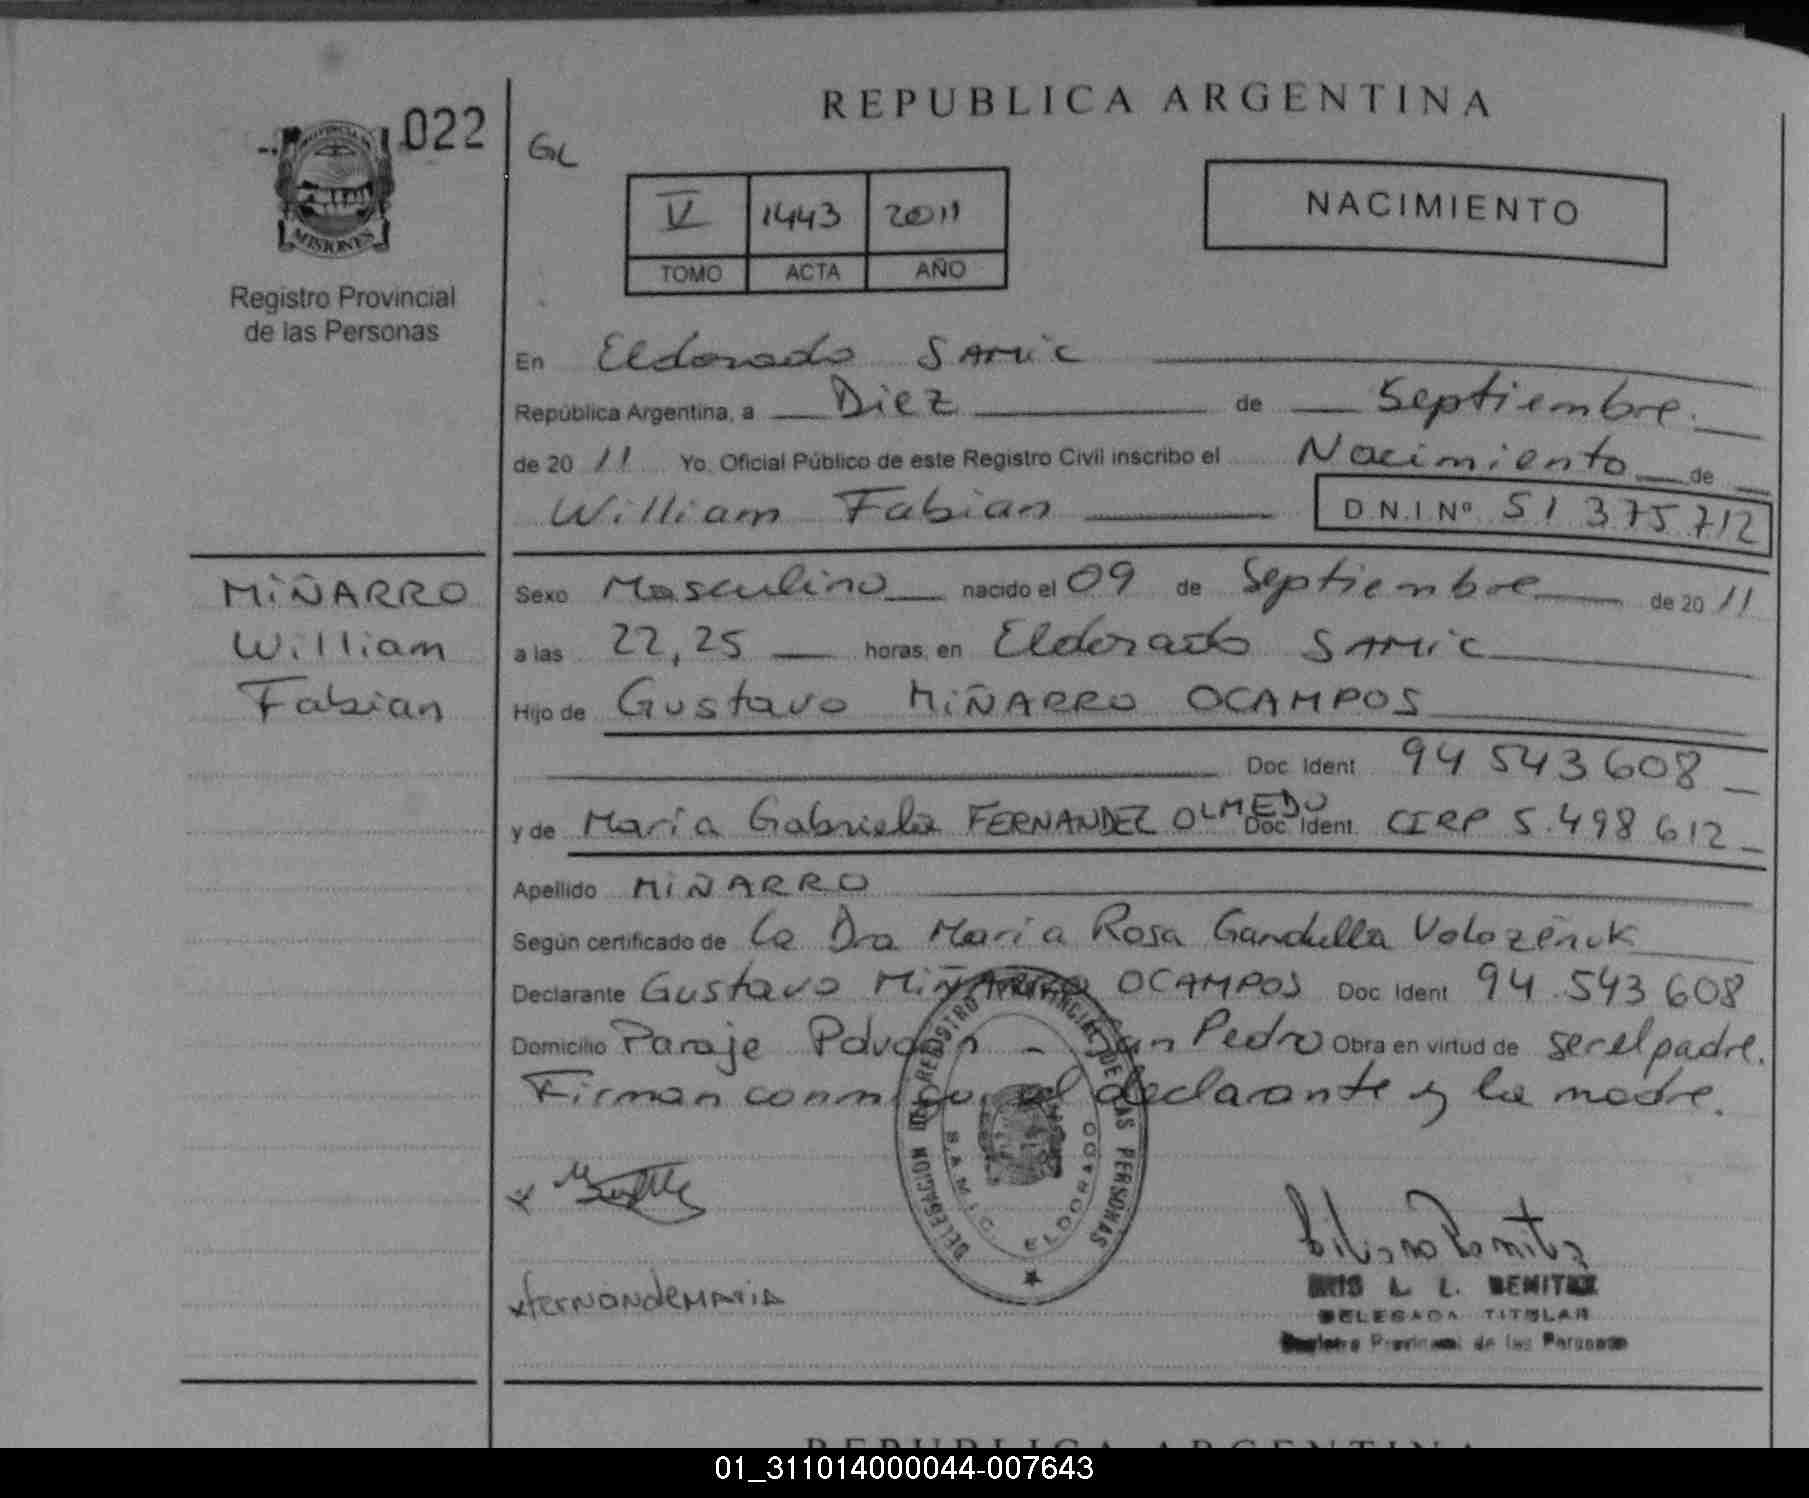 REPUBLICA ARGENTINA
022
GL
PROVINCIA DE
MISIONES
Registro Provincial
de las Personas
V 1443 2011
TOMO ACTA AÑO
NACIMIENTO
En Eldorado SAMIC
República Argentina, a Diez de Septiembre.
de 20 11 Yo. Oficial Público de este Registro Civil inscribo el Nacimiento de
William Fabian D.N.I Nº 51 375.712
MIÑARRO
William
Fabian
Sexo Masculino nacido el 09 de Septiembre de 20 11
a las 22,25 horas, en Eldorado SAMIC
Hijo de Gustavo MIÑARRO OCAMPOS
Doc. Ident. 94 543 608
y de Maria Gabriela FERNANDEZ OLMEDO Doc. Ident. CIRP 5.498 612
Apellido MIÑARRO
Según certificado de La Dra Maria Rosa Gandulla
Declarante Gustavo MIÑARRO OCAMPOS Doc. Ident. 94.543 608
Domicilio Paraje - San Pedro Obra en virtud de ser el padre.
Firman conmigo, el declarante y la madre.
DELEGACION DEL REGISTRO PROVINCIAL DE LAS PERSONAS
S.A.M.I.C. ELDORADO
x fernandeMaria
L. L. BENITEZ
DELEGADA TITULAR
Registro Provincial de las Personas
REPUBLICA ARGENTINA
01_311014000044-007643